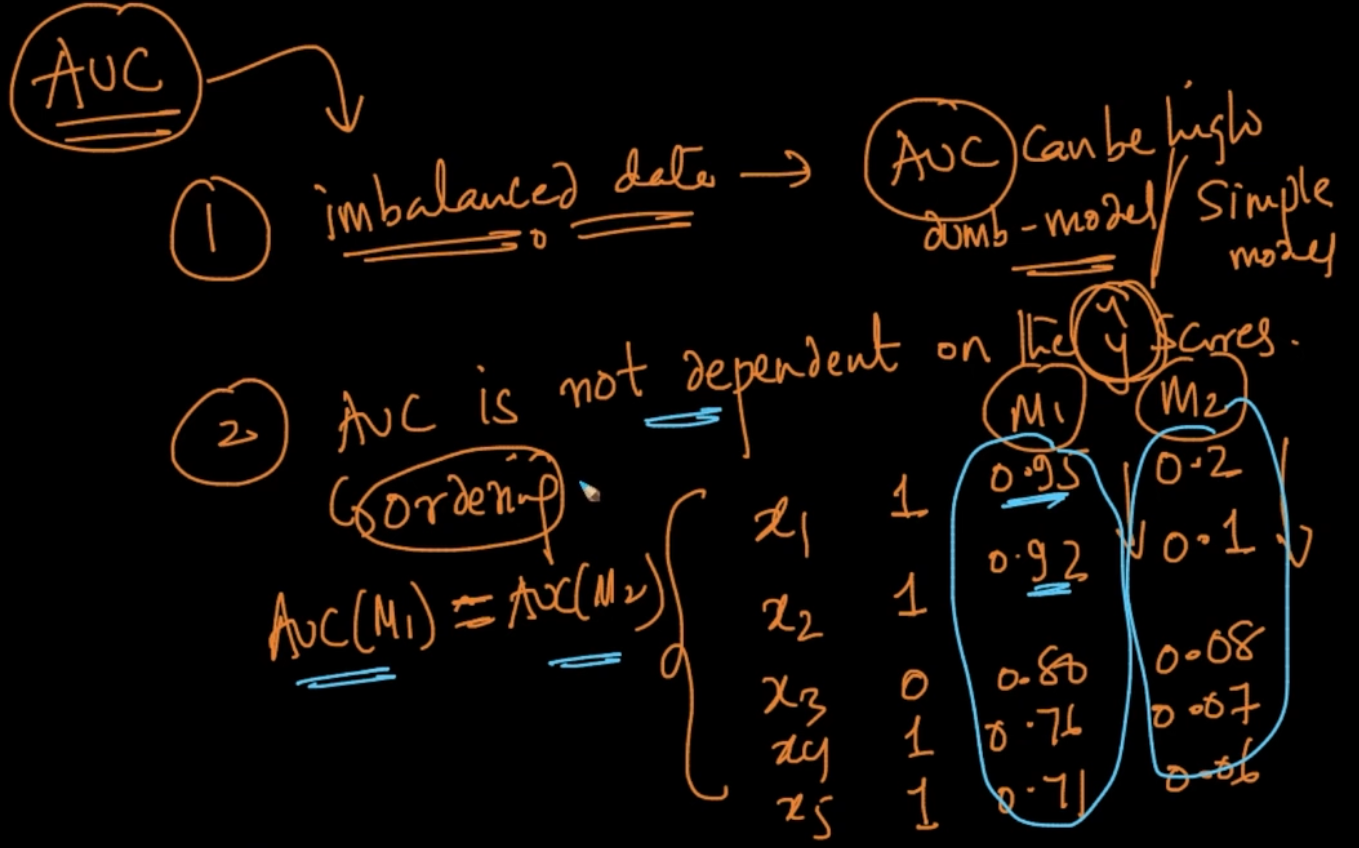 AUC
1 imbalanced data → AUC can be high
dumb-model / Simple model
2 AUC is not dependent on the ŷ scores.
ordering
M1 M2
x1 1 0.95 0.2
x2 1 0.92 0.1
AUC(M1) = AUC(M2)
x3 0 0.80 0.08
x4 1 0.76 0.07
x5 1 0.71 0.06